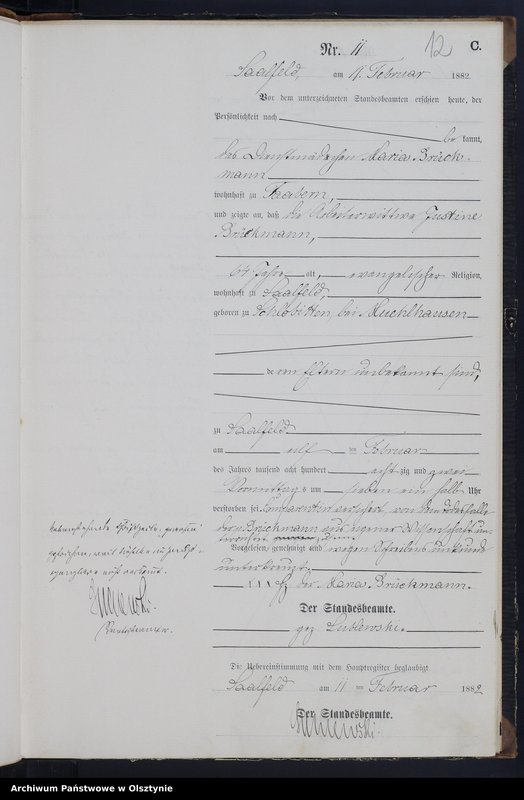 Nr. 11
12
C.
Saalfeld, am 11. Februar 1882.
Vor dem unterzeichneten Standesbeamten erschien heute, der
Persönlichkeit nach
be kannt,
das Dienstmädchen Maria Brück-
mann
wohnhaft zu
und zeigte an, daß die Arbeiterwittwe Justine
Brückmann,
64 Jahre alt, evangelischer Religion,
wohnhaft zu Saalfeld,
geboren zu Schlobitten, bei Muehlhausen
deren Eltern unbekannt sind,
zu Saalfeld
am elf ten Februar
des Jahres tausend acht hundert acht zig und zwei
Vormittags um sieben ein halb Uhr
verstorben sei. Comparentin versichert von dem Todesfalle
der Brückmann aus eigener Wissenschaft un-
terrichtet zu sein
Vorgelesen, genehmigt und wegen Schreibens unkunde
unterkreuzt.
††† Hz der Maria Brückmann.
Der Standesbeamte.
gez Lublewski.
Die Uebereinstimmung mit dem Hauptregister beglaubigt
Saalfeld am 11 ten Februar 1882
Der Standesbeamte.
Standesbeamter.
Archiwum Państwowe w Olsztynie